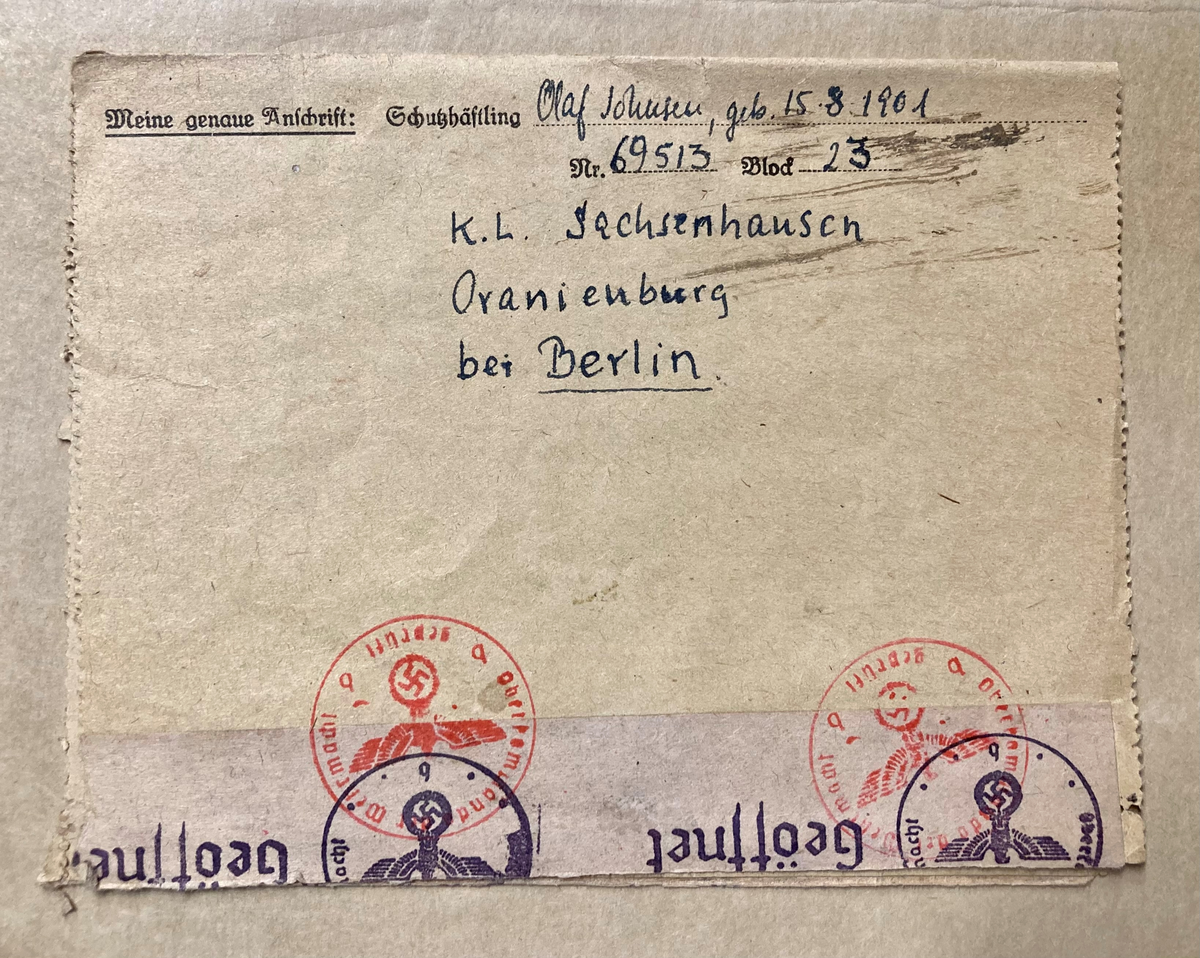 Meine genaue Anschrift: Schutzhäftling Olaf Johnsen, geb. 15.8.1901
Nr. 69513 Block 23
K.L. Sachsenhausen
Oranienburg
bei Berlin.
geprüft
b b
Oberkommando der Wehrmacht
geprüft
b b
Oberkommando der Wehrmacht
Geöffnet
b
Geöffnet
b